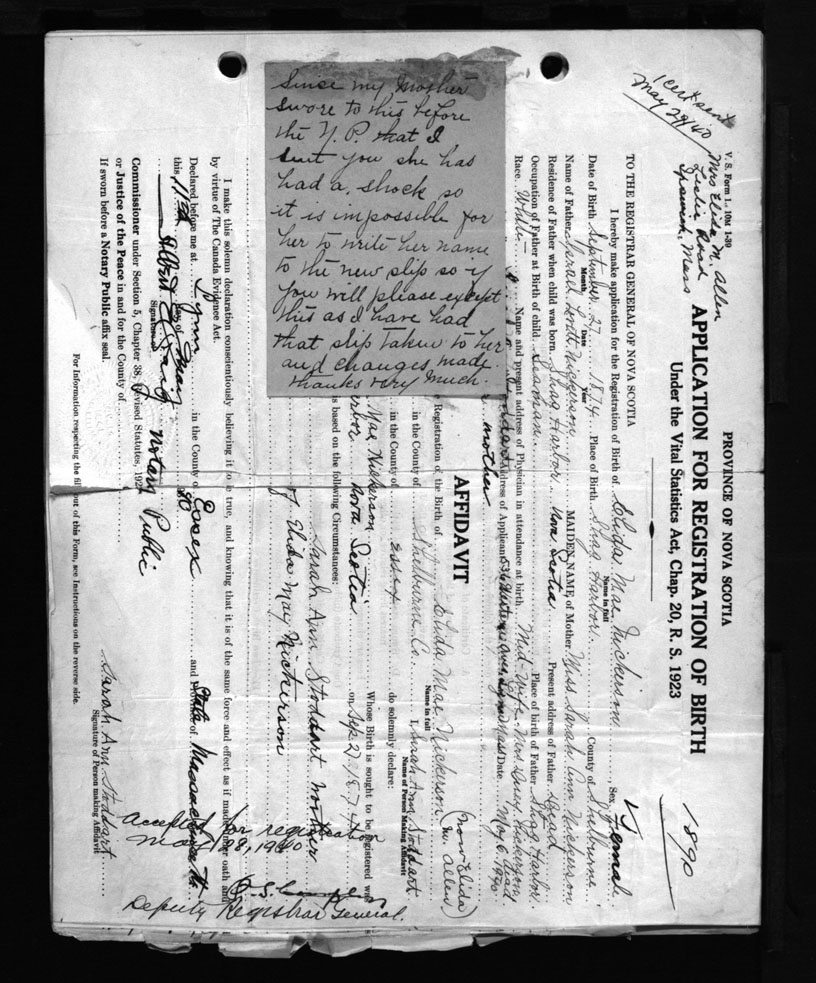 Since my Mother
swore to this before
the N. P. that I
sent you she has
had a shock so
it is impossible for
her to write her name
to the new slip so if
you will please except
this as I have had
that slip taken to her
and changes made.
thanks very much.
1 cert sent
May 29/40
V. S. Form 1.
Mrs Elida M. Allen
Leslie Road
Mass
1890
PROVINCE OF NOVA SCOTIA
APPLICATION FOR REGISTRATION OF BIRTH
Under the Vital Statistics Act, Chap. 20, R. S. 1923
TO THE REGISTRAR GENERAL OF NOVA SCOTIA
I hereby make application for the Registration of Birth of Elida Mae Nickerson, Sex Female
Name in full
Date of Birth September 27 1874 Place of Birth Shag Harbor County of Shelburne
Month Date Year
Name of Father Nickerson MAIDEN NAME of Mother Miss Sarah Ann Nickerson
Residence of Father when child was born Shag Harbor Nova Scotia Present address of Father Dead
Occupation of Father at Birth of child Seaman Place of birth of Father Shag Harbor
Race White Name and present address of Physician in attendance at birth Mid. Wife Mrs Nickerson Dead
Address of Applicant Date May 6, 1940
mother
AFFIDAVIT
Registration of the Birth of Elida Mae Nickerson (now Elida M. Allen)
Name in full
in the County of Shelburne Co. I, Sarah Ann Stoddart
Name of Person Making Affidavit
in the County of Essex do solemnly declare:
Mae Nickerson Whose Birth is sought to be registered was
Nova Scotia on Sep 27 1874
is based on the following Circumstances:
Sarah Ann Stoddart mother
of Elida May Nickerson
I make this solemn declaration conscientiously believing it to be true, and knowing that it is of the same force and effect as if made under oath and
by virtue of The Canada Evidence Act.
Declared before me at Lynn in the County of Essex and State of Massachusetts
this 11th day of May 40
Albert Notary Public
Signature
Commissioner under Section 5, Chapter 38, Revised Statutes, 1923
or Justice of the Peace in and for the County of
If sworn before a Notary Public affix seal.
Sarah Ann Stoddart
Signature of Person making Affidavit
Accepted for registration
May 28, 1940
Deputy Registrar General.
For Information respecting the filling out of this Form, see Instructions on the reverse side.